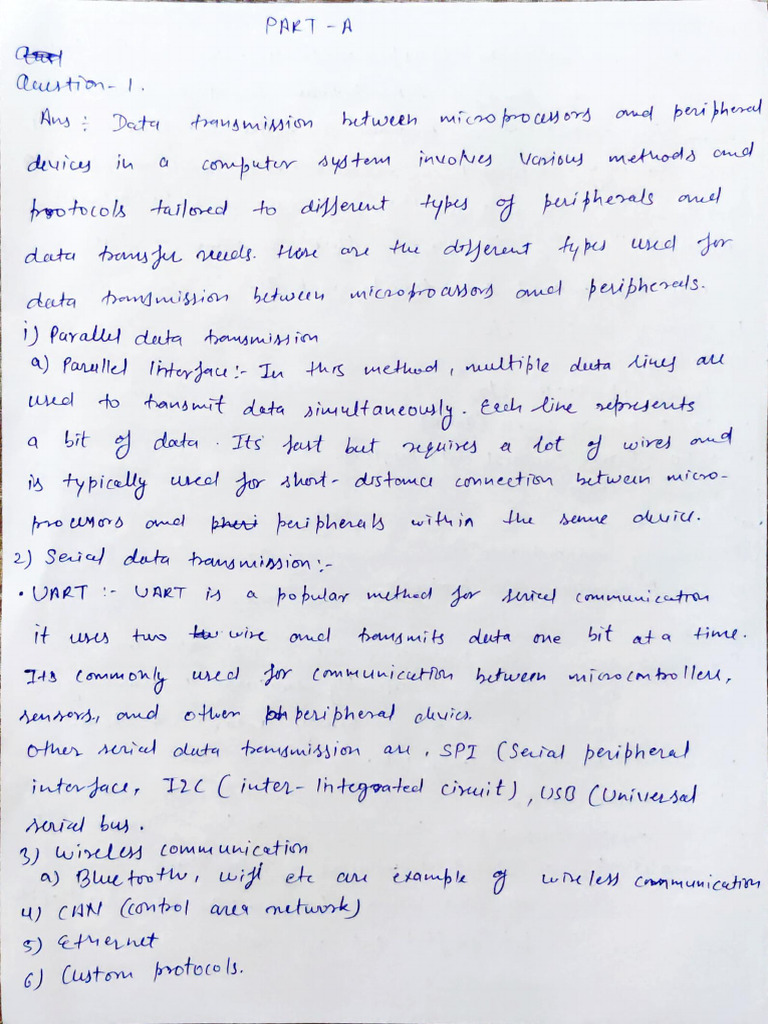 PART - A
Question - 1.
Ans : Data transmission between microprocessors and peripheral
devices in a computer system involves various methods and
protocols tailored to different types of peripherals and
data transfer needs. Here are the different types used for
data transmission between microprocessors and peripherals.
i) Parallel data transmission
a) Parallel Interface :- In this method, multiple data lines are
used to transmit data simultaneously. Each line represents
a bit of data. Its fast but requires a lot of wires and
is typically used for short-distance connection between micro-
processors and peripherals within the same device.
2) Serial data transmission :-
• UART :- UART is a popular method for serial communication
it uses two wire and transmits data one bit at a time.
Its commonly used for communication between microcontrollers,
sensors, and other peripheral devices.
Other serial data transmission are, SPI (Serial peripheral
interface, I2C (inter-Integrated circuit), USB (Universal
serial bus.
3) Wireless communication
a) Bluetooth, wifi etc are example of wireless communication
4) CAN (control area network)
5) Ethernet
6) Custom protocols.